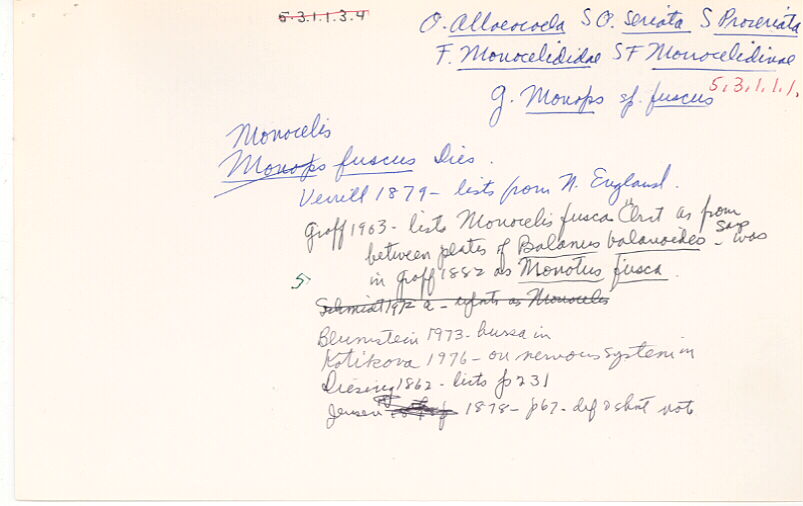 5.3.1.1.3.4
O. Alloeocoela SO. Seriata S Proseriata
F. Monocelididae SF Monocelidinae
5.3.1.1.1.
g. Monops sp. fuscus
Monocelis
Monops fuscus Dies.
Verrill 1879 - lists from N. England.
Graff 1903 - lists Monocelis fusca Örst as from
between plates of Balanus balanoides - says was
in Graff 1882 as Monotus fusca.
5
Schmidt 1972a - reports as Monocelis
Blumstein 1973 - bursa in
Kotikova 1976 - on nervous system in
Diesing 1862 - lists p231
Jensen 1878 - p67 - def & short note